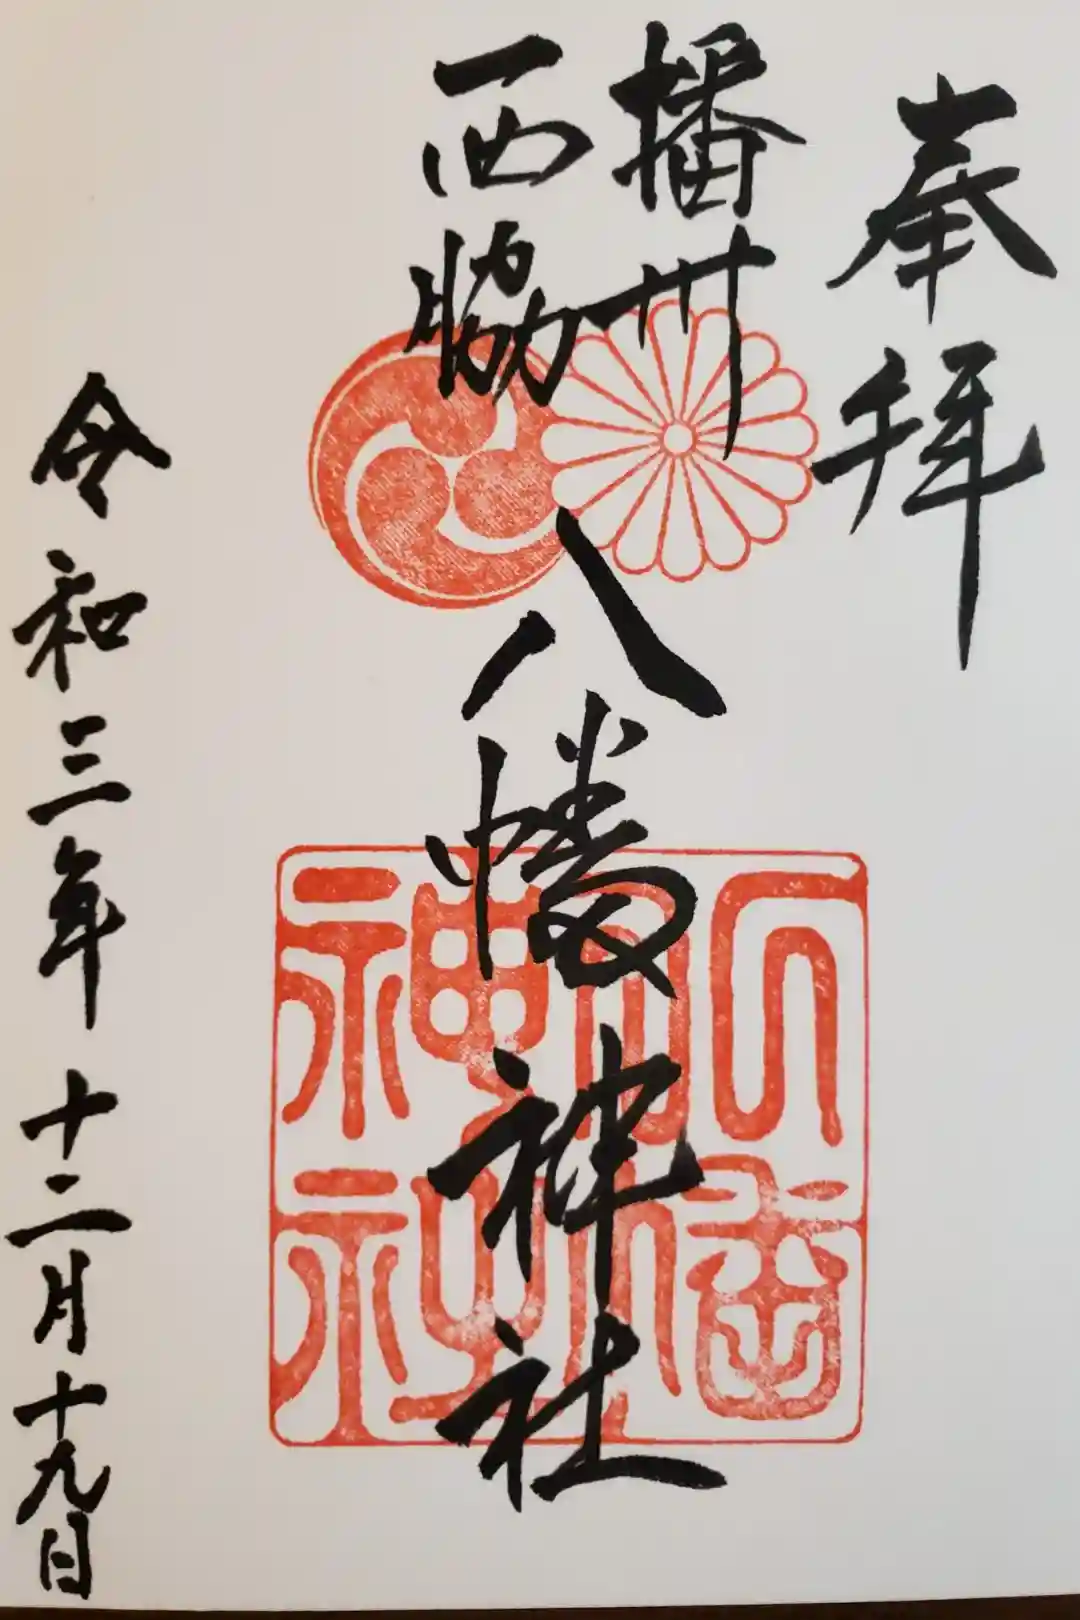 奉拝
播州
西脇
八幡神社
令和三年十二月十九日